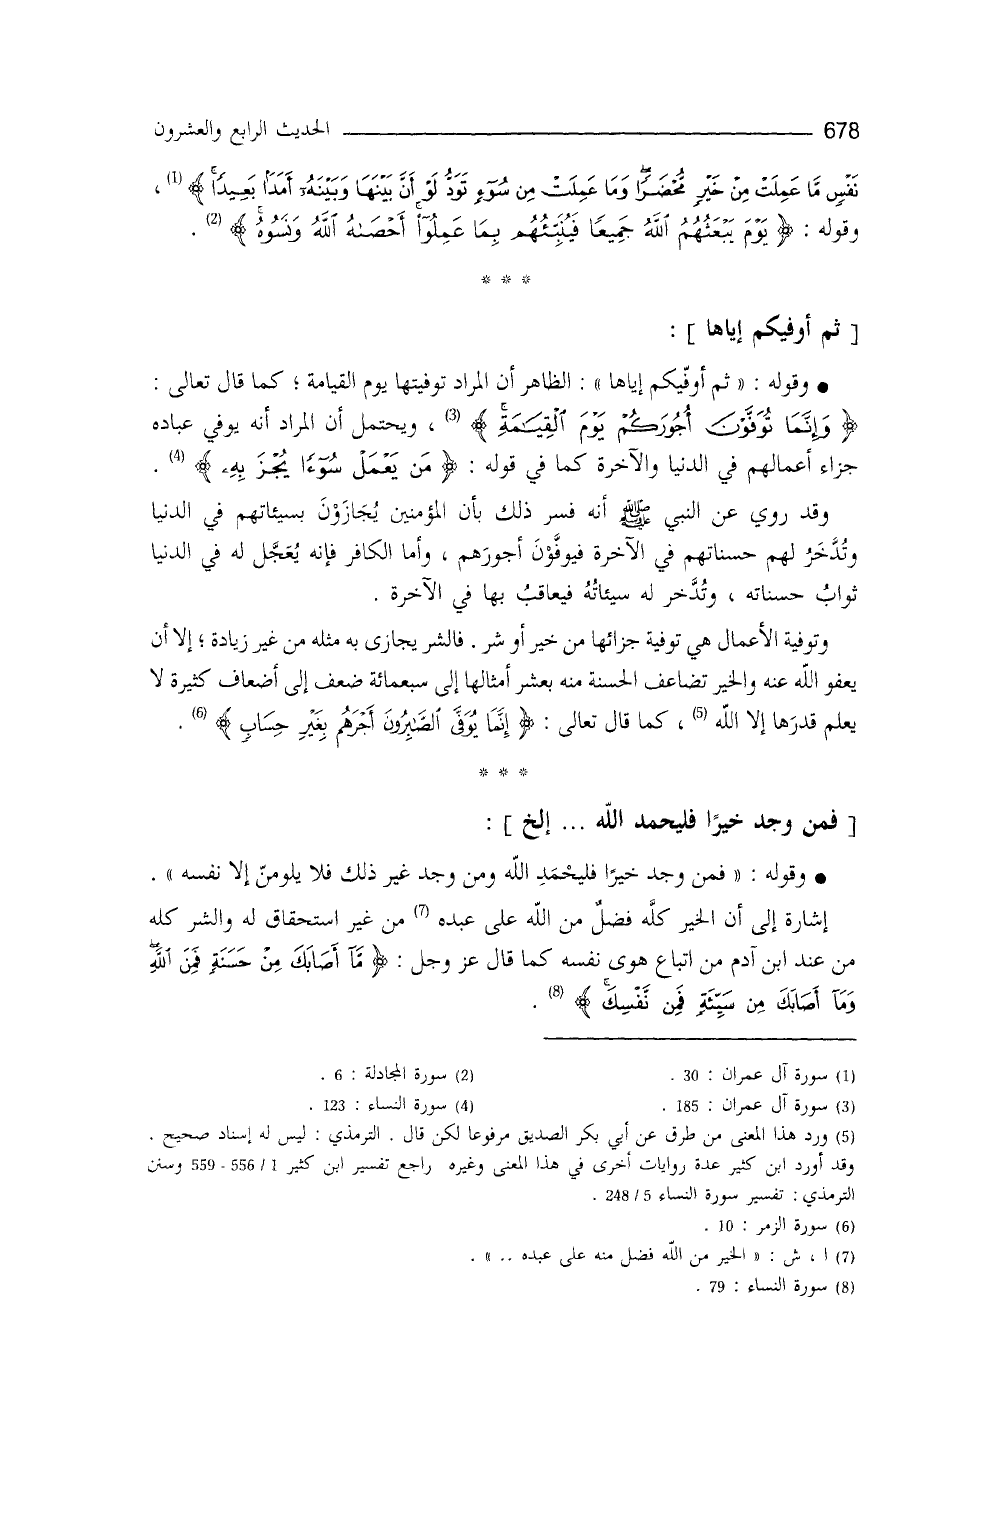 678 الحديث الرابع والعشرون
نَفْسٍ مَّا عَمِلَتْ مِنْ خَيْرٍ مُّحْضَرًا وَمَا عَمِلَتْ مِن سُوٓءٍ تَوَدُّ لَوْ أَنَّ بَيْنَهَا وَبَيْنَهُۥٓ أَمَدًۢا بَعِيدًا ﴾ (1) ،
وقوله : ﴿ يَوْمَ يَبْعَثُهُمُ ٱللَّهُ جَمِيعًا فَيُنَبِّئُهُم بِمَا عَمِلُوٓا۟ أَحْصَىٰهُ ٱللَّهُ وَنَسُوهُ ﴾ (2) .
* * *
[ ثم أوفيكم إياها ] :
● وقوله : « ثم أوفّيكم إياها » : الظاهر أن المراد توفيتها يوم القيامة ؛ كما قال تعالى :
﴿ وَإِنَّمَا تُوَفَّوْنَ أُجُورَكُمْ يَوْمَ ٱلْقِيَـٰمَةِ ﴾ (3) ، ويحتمل أن المراد أنه يوفي عباده
جزاء أعمالهم في الدنيا والآخرة كما في قوله : ﴿ مَن يَعْمَلْ سُوٓءًا يُجْزَ بِهِۦ ﴾ (4) .
وقد روي عن النبي ﷺ أنه فسر ذلك بأن المؤمنين يُجَازَوْنَ بسيئاتهم في الدنيا
وتُدَّخَرُ لهم حسناتهم في الآخرة فيوفَّوْنَ أجورَهم ، وأما الكافر فإنه يُعَجَّل له في الدنيا
ثوابُ حسناته ، وتُدَّخر له سيئاتُهُ فيعاقبُ بها في الآخرة .
وتوفية الأعمال هي توفية جزائها من خير أو شر . فالشر يجازى به مثله من غير زيادة ؛ إلا أن
يعفو اللّه عنه والخير تضاعف الحسنة منه بعشر أمثالها إلى سبعمائة ضعف إلى أضعاف كثيرة لا
يعلم قدرَها إلا اللّه (5) ، كما قال تعالى : ﴿ إِنَّمَا يُوَفَّى ٱلصَّـٰبِرُونَ أَجْرَهُم بِغَيْرِ حِسَابٍ ﴾ (6) .
* * *
[ فمن وجد خيرًا فليحمد اللّه ... إلخ ] :
● وقوله : « فمن وجد خيرًا فليحْمَدِ اللّه ومن وجد غير ذلك فلا يلومنّ إلا نفسه » .
إشارة إلى أن الخير كلَّه فضلٌ من اللّه على عبده (7) من غير استحقاق له والشر كله
من عند ابن آدم من اتباع هوى نفسه كما قال عز وجل : ﴿ مَّآ أَصَابَكَ مِنْ حَسَنَةٍ فَمِنَ ٱللَّهِ
وَمَآ أَصَابَكَ مِن سَيِّئَةٍ فَمِن نَّفْسِكَ ﴾ (8) .
(1) سورة آل عمران : 30 . (2) سورة المجادلة : 6 .
(3) سورة آل عمران : 185 . (4) سورة النساء : 123 .
(5) ورد هذا المعنى من طرق عن أبي بكر الصديق مرفوعا لكن قال . الترمذي : ليس له إسناد صحيح .
وقد أورد ابن كثير عدة روايات أخرى في هذا المعنى وغيره راجع تفسير ابن كثير 1 / 556 - 559 وسنن
الترمذي : تفسير سورة النساء 5 / 248 .
(6) سورة الزمر : 10 .
(7) ا ، ش : « الخير من اللّه فضل منه على عبده .. » .
(8) سورة النساء : 79 .